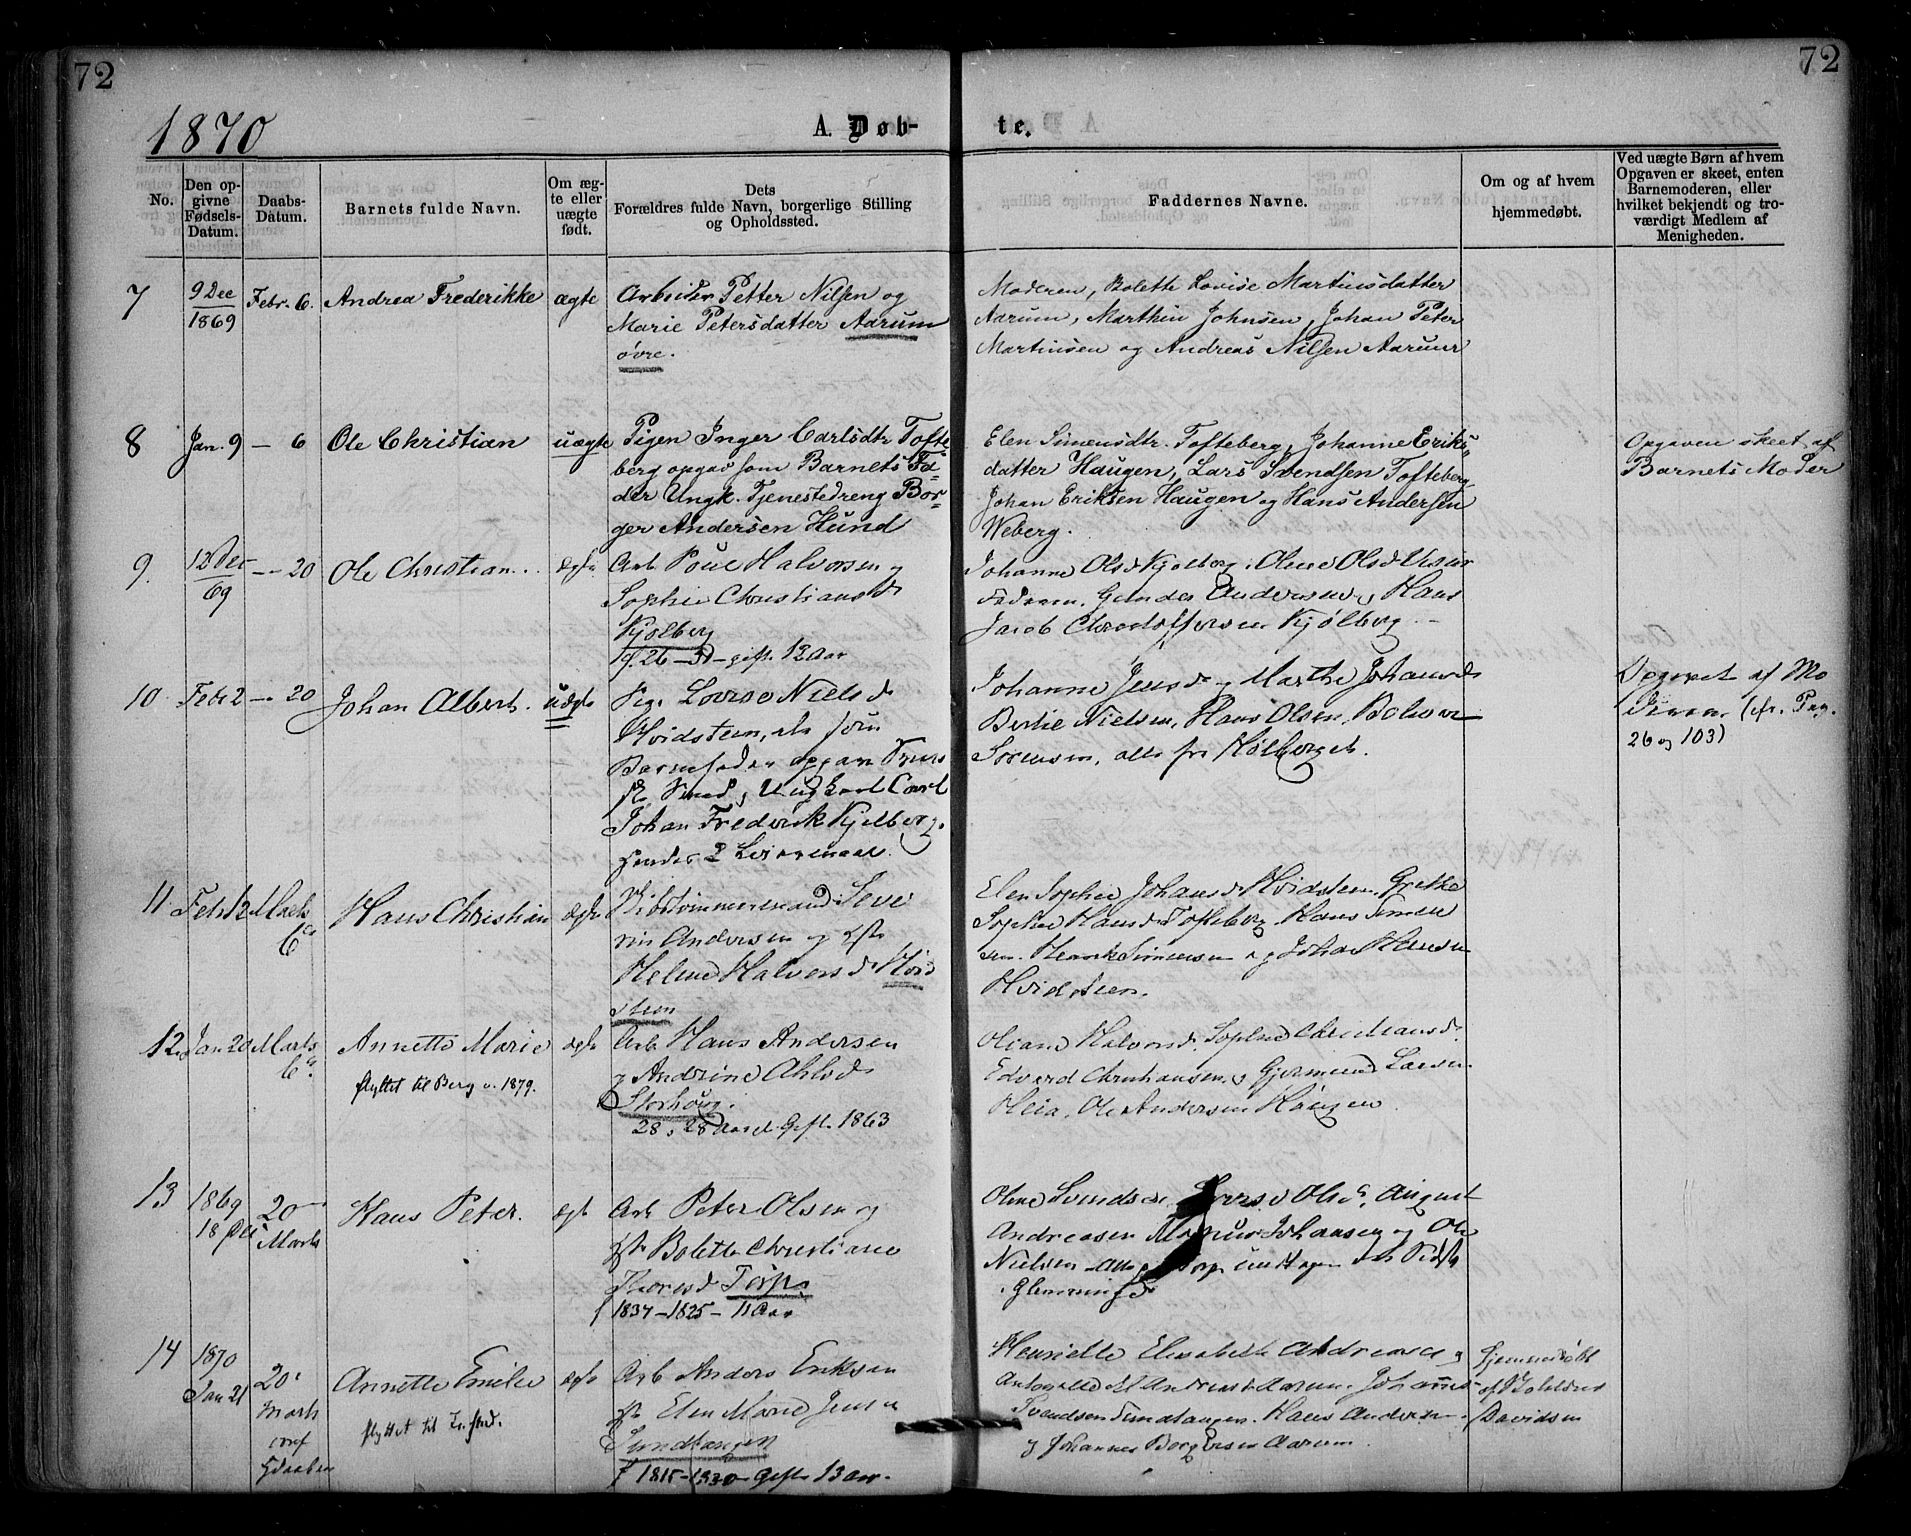 72
72
1870
A. Døb-
te.
No.
Den op-
givne
Fødsels-
Datum.
Daabs-
Datum.
Barnets fulde Navn.
Om æg-
te eller
uægte
født.
Dets
Forældres fulde Navn, borgerlige Stilling
og Opholdssted.
Faddernes Navne.
Om og af hvem
hjemmedøbt.
Ved uægte Børn af hvem
Opgaven er skeet, enten
Barnemoderen, eller
hvilket bekjendt og tro-
værdigt Medlem af
Menigheden.
7
9 Dec
1869
Febr. 6.
Andrea Frederikke
ægte
Arbeider Petter Nilsen og
Marie Petersdatter Aarum
øvre.
Moderen, Bolette Lovise Martinsdatter
Aarum, Marthin Johnsen, Johan Peter
Martinsen og Andreas Nilsen Aarum
8
Jan. 9
— 6
Ole Christian
uægte
Pigen Inger Carlsdtr. Tofte
berg opgav som Barnets Fa-
der Ungk. Tjenestedreng Bor-
ger Andersen Hund
Elen Simensdtr. Tofteberg, Johanne Eriks-
datter Haugen, Lars Svendsen Tofteberg
Johan Eriksen Haugen og Hans Andersen
Weberg.
Opgaven skeet af
Barnets Moder
9.
12 Dec
69
— 20
Ole Christian
ægte
Arb Poul Halvorsen og
Sophie Christiansd
Kjølberg
f. 26 — 31 — gift 12 Aar
Johanne Olsd Kjølberg, Oline Olsd
Faderen, Gunder Andersen og Hans
Jacob Christoffersen Kjølberg. —
10
Febr 2
— 20
Johan Albert.
uægte
Pige Lovise Nielsd
Hvidsteen, der som
Barnefader opgav
Ungkarl Carl
Johan Frederik Kjølberg.
hendes 2 Leiermaal.
Johanne Jensd og Marthe Johansd
Bertie Nielsen, Hans Olsen,
Sørensen, alle fra Hølberget.
Opgivet af Mo
deren (cfr. Pag.
26 og 103)
11
Febr 12
Marts
6te
Hans Christian
ægte
Skibstømmermand Seve
rin Andersen og Hst
Helene Halvorsd Hvid
steen
Elen Sophie Johansd Hvidsteen, Grethe
Sophie Hansd Tofteberg, Hans Simen
sen. Henrik Simensen og Johan Hansen
Hvidsteen.
12.
Jan 20
Marts
6te
Annette Marie
flyttet til Berg v. 1879.
ægte
Arb Hans Andersen
og Andrine Olsd
Storhaug.
28 o 28 Aar Gift 1863
Oliane Halvorsd, Sophie Christiansd.
Edvard Christiansen og Gjermund Larsen
Heia, Ole Andersen Haugen
13
1869
18 Dec
20
Marts
Hans Peter.
ægt
Arb Peter Olsen og
Hst. Bolette Christiane
Thoresd Torp
f 1837 — 1825 — 11 Aar
Oline Svendsd. Olsd. August
Andreasen Johansen og Ole
Nielsen
Glemminge
14
1870
Jan 21
20
Marts
conf
Hdaaben
Annette Emilie
flyttet til
ægte
Arb Anders Eriksen
Hst Elen Marie Jensd
Sundtangen
f 1815 — 1830 Gift 13 Aar.
Henriette Elisabeth Andreasen og
Antonette Andreasd Aarum. Johannes
Svendsen Sundtangen. Hans Andersen
og Johannes Borgersen Aarum.
Hjemmedøbt
af
Davidsen